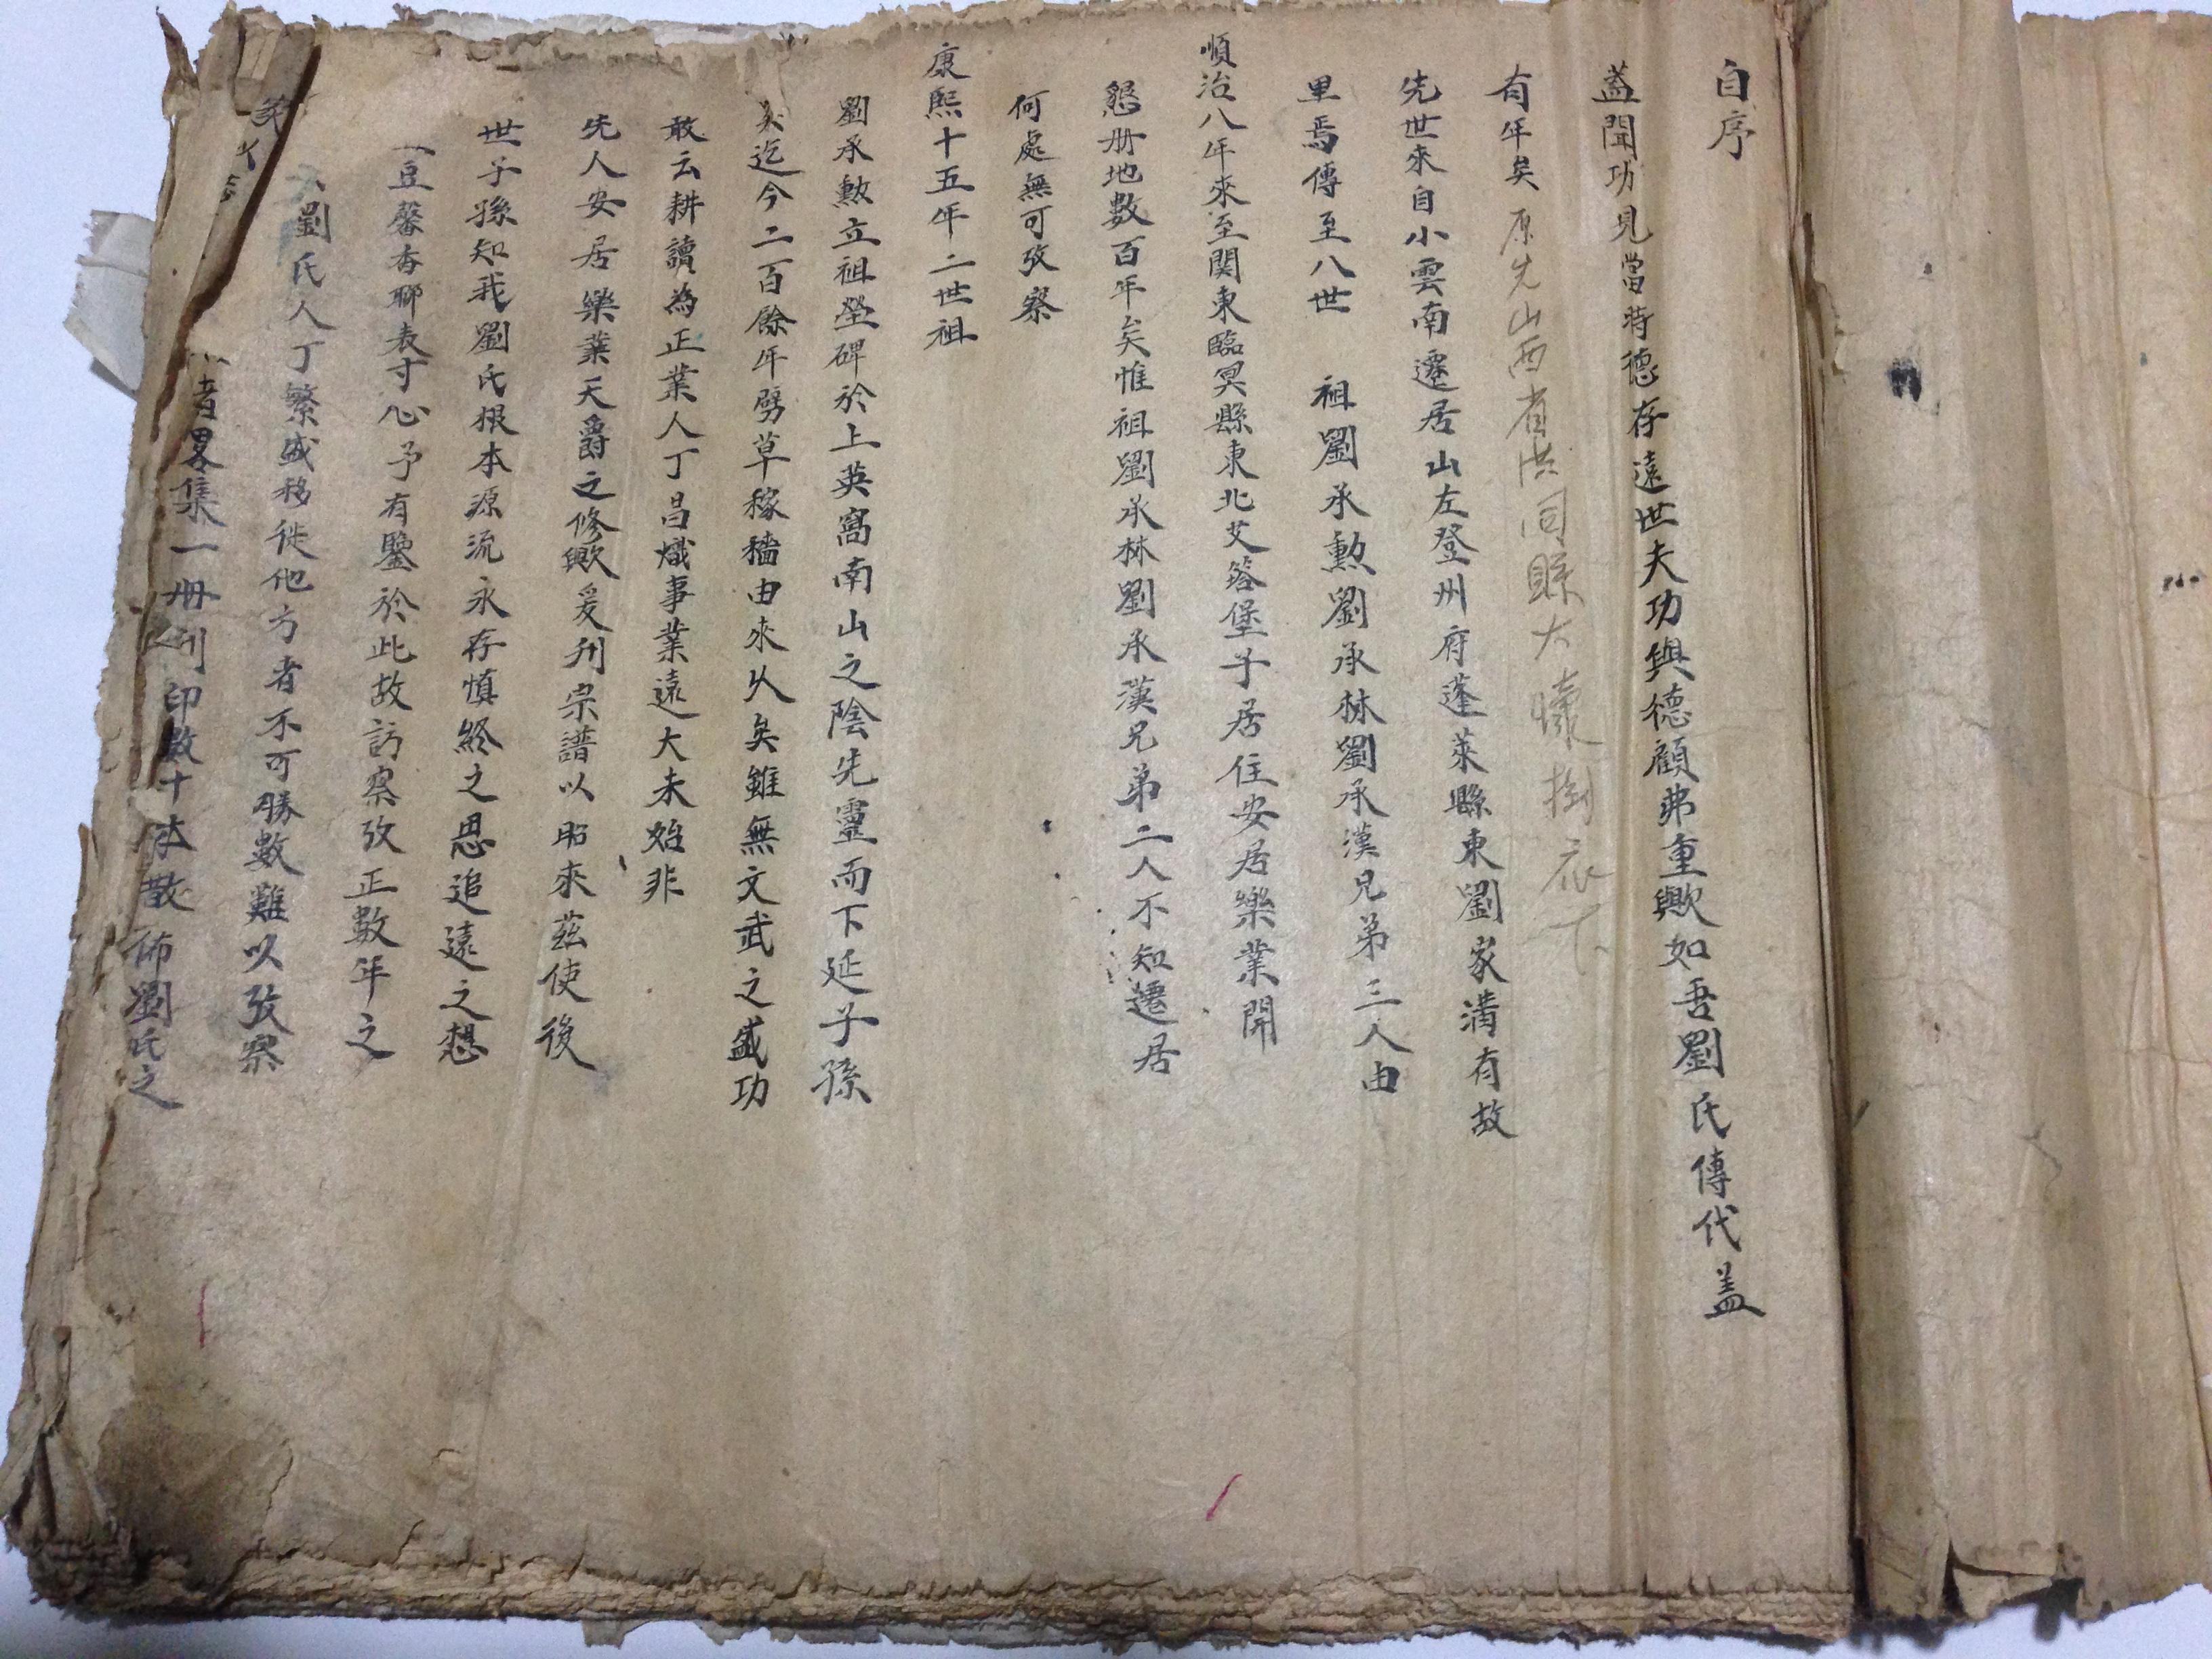 自序
蓋聞功見當時德存遠世夫功與德顧弗重歟如吾劉氏傳代蓋
有年矣 原先山西省洪同縣大懷樹底下
先世來自小雲南遷居山左登州府蓬萊縣東劉家溝有故
里焉傳至八世 祖劉承勲劉承林劉承漢兄弟三人由
順治八年來至関東臨冥縣東北艾荅堡子居住安居樂業開
懇册地數百年矣惟祖劉承林劉承漢兄弟二人不知遷居
何處無可攷察
康熙十五年二世祖
劉承勲立祖塋碑於上英窩南山之陰先靈而下延子孫
矣迄今二百餘年劈草稼穡由來久矣雖無文武之盛功
敢云耕讀為正業人丁昌熾事業遠大未始非
先人安居樂業天爵之修歟爰刋宗譜以昭來茲使後
世子孫知我劉氏根本源流永存慎終之思追遠之想
豆馨香聊表寸心予有鑒於此故訪察攷正數年之
劉氏人丁繁盛移徙他方者不可勝數難以攷察
者畧集一册刋印數十本散佈劉氏之